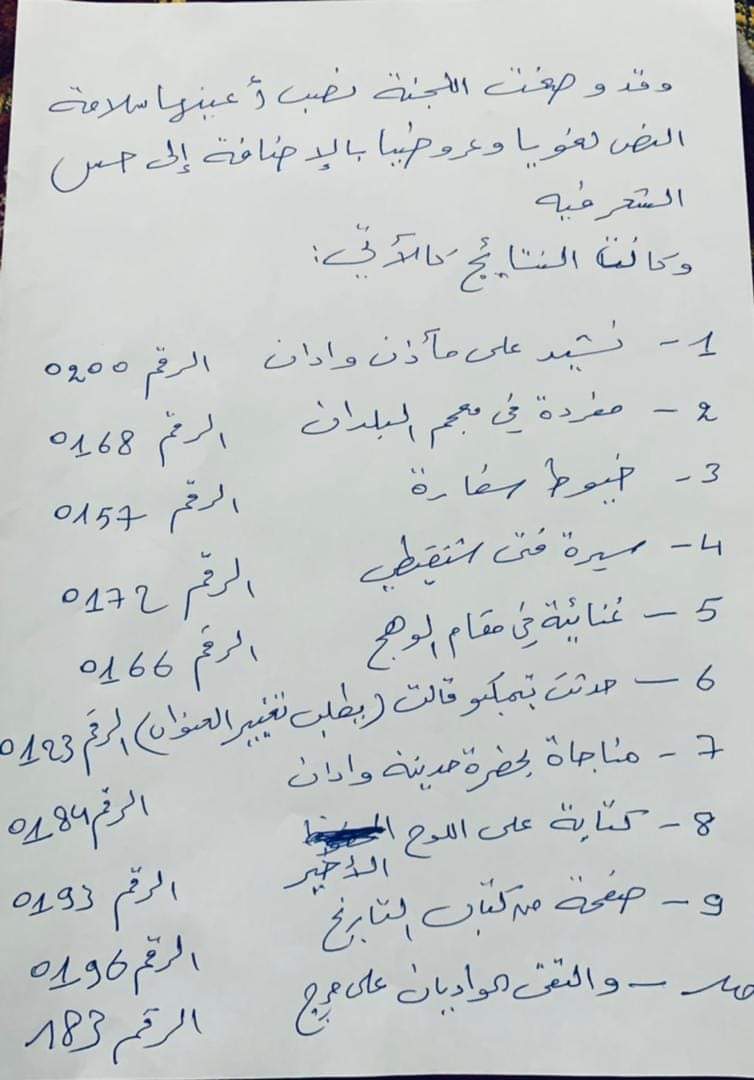 وقد وضعت اللجنة نصب أعينها سلامة
النص لغويا وعروضيا بالإضافة إلى حس
الشعر فيه
وكانت النتائج كالآتي:
1- نشيد على مآذن وادان الرقم 0200
2- مفردة في معجم البلدان الرقم 0168
3- خيوط سفارة الرقم 0157
4- سيرة فتى شنقيطي الرقم 0172
5- غنائية في مقام الوهج الرقم 0166
6- حدثت تمبكتو قالت (بطلب تغيير العنوان) الرقم 0123
7- مناجاة لحضرة مدينة وادان الرقم 0184
8- كتابة على اللوح
الأخير الرقم 0193
9- صفحة من كتاب التاريخ الرقم 0196
10- والتقى الواديان على الرقم 183